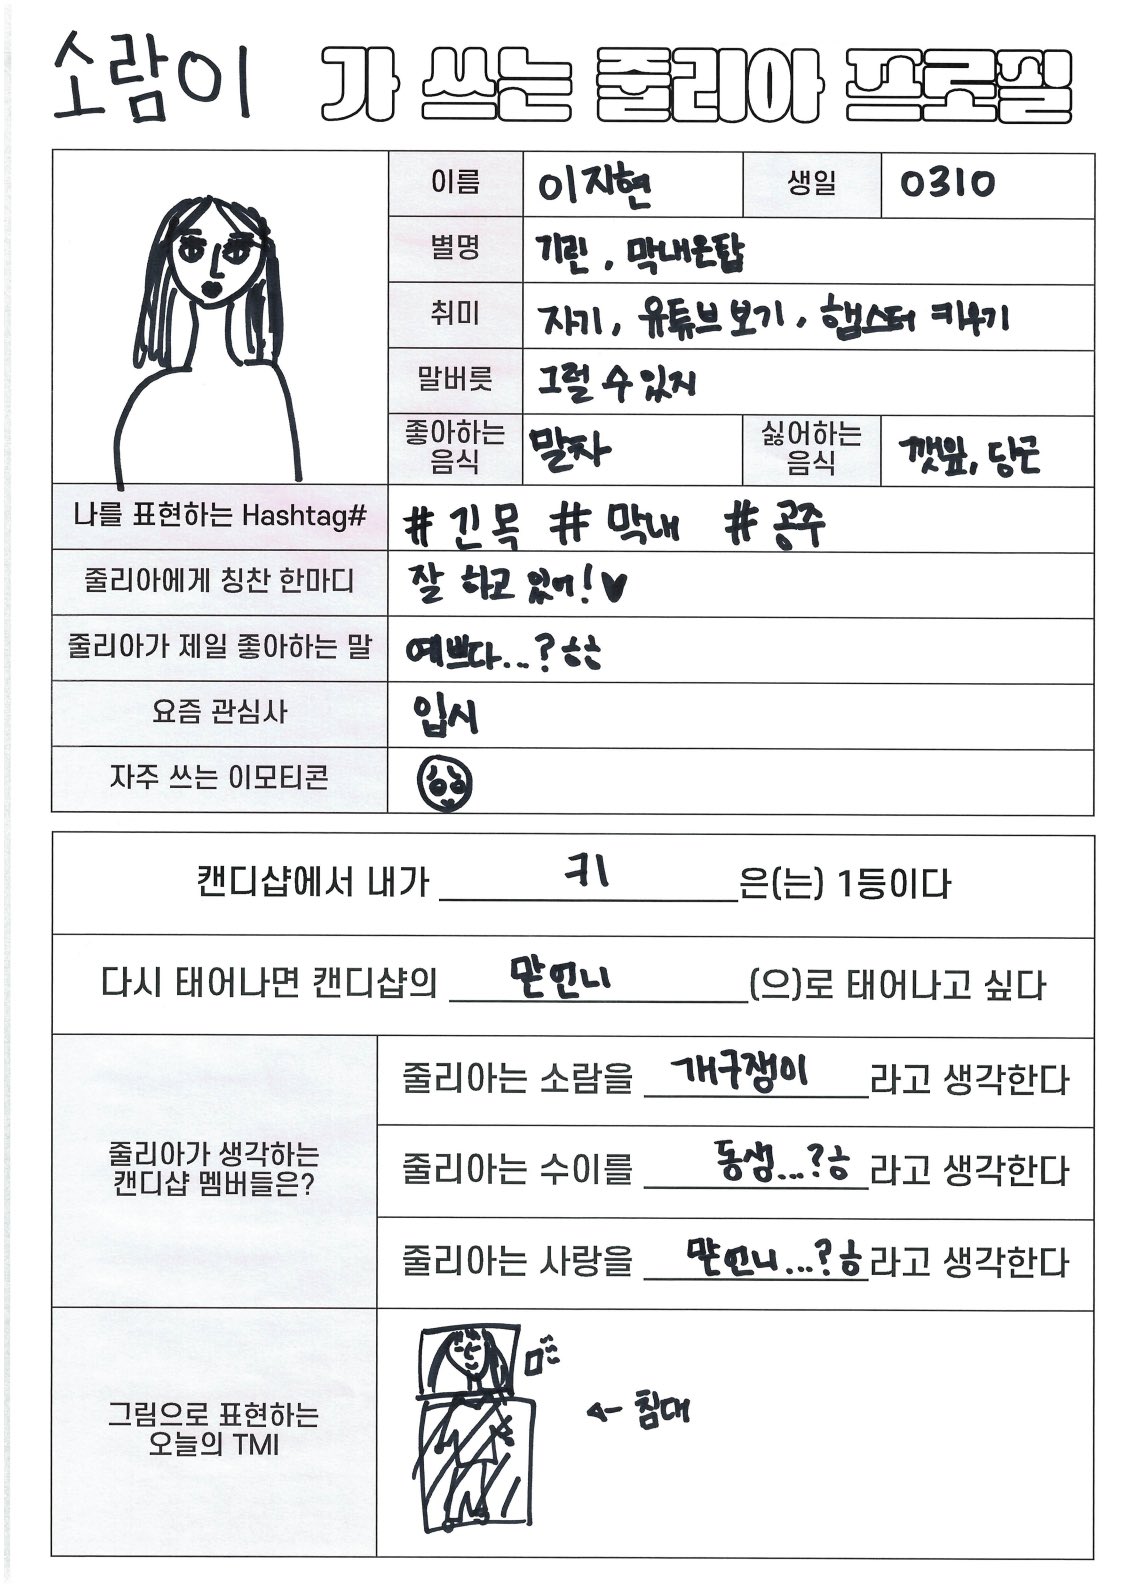 소람이 가 쓰는 줄리아 프로필
이름 이지현 생일 0310
별명 기린, 막내온탑
취미 자기, 유튜브 보기, 햄스터 키우기
말버릇 그럴 수 있지
좋아하는 음식 말차 싫어하는 음식 깻잎, 당근
나를 표현하는 Hashtag# #긴목 #막내 #공주
줄리아에게 칭찬 한마디 잘 하고 있어!♥
줄리아가 제일 좋아하는 말 예쁘다...?ㅎㅎ
요즘 관심사 입시
자주 쓰는 이모티콘
캔디샵에서 내가 키 은(는) 1등이다
다시 태어나면 캔디샵의 맏언니 (으)로 태어나고 싶다
줄리아가 생각하는
캔디샵 멤버들은?
줄리아는 소람을 개구쟁이 라고 생각한다
줄리아는 수이를 동생...?ㅎ 라고 생각한다
줄리아는 사랑을 맏언니...?ㅎ 라고 생각한다
그림으로 표현하는
오늘의 TMI
← 침대